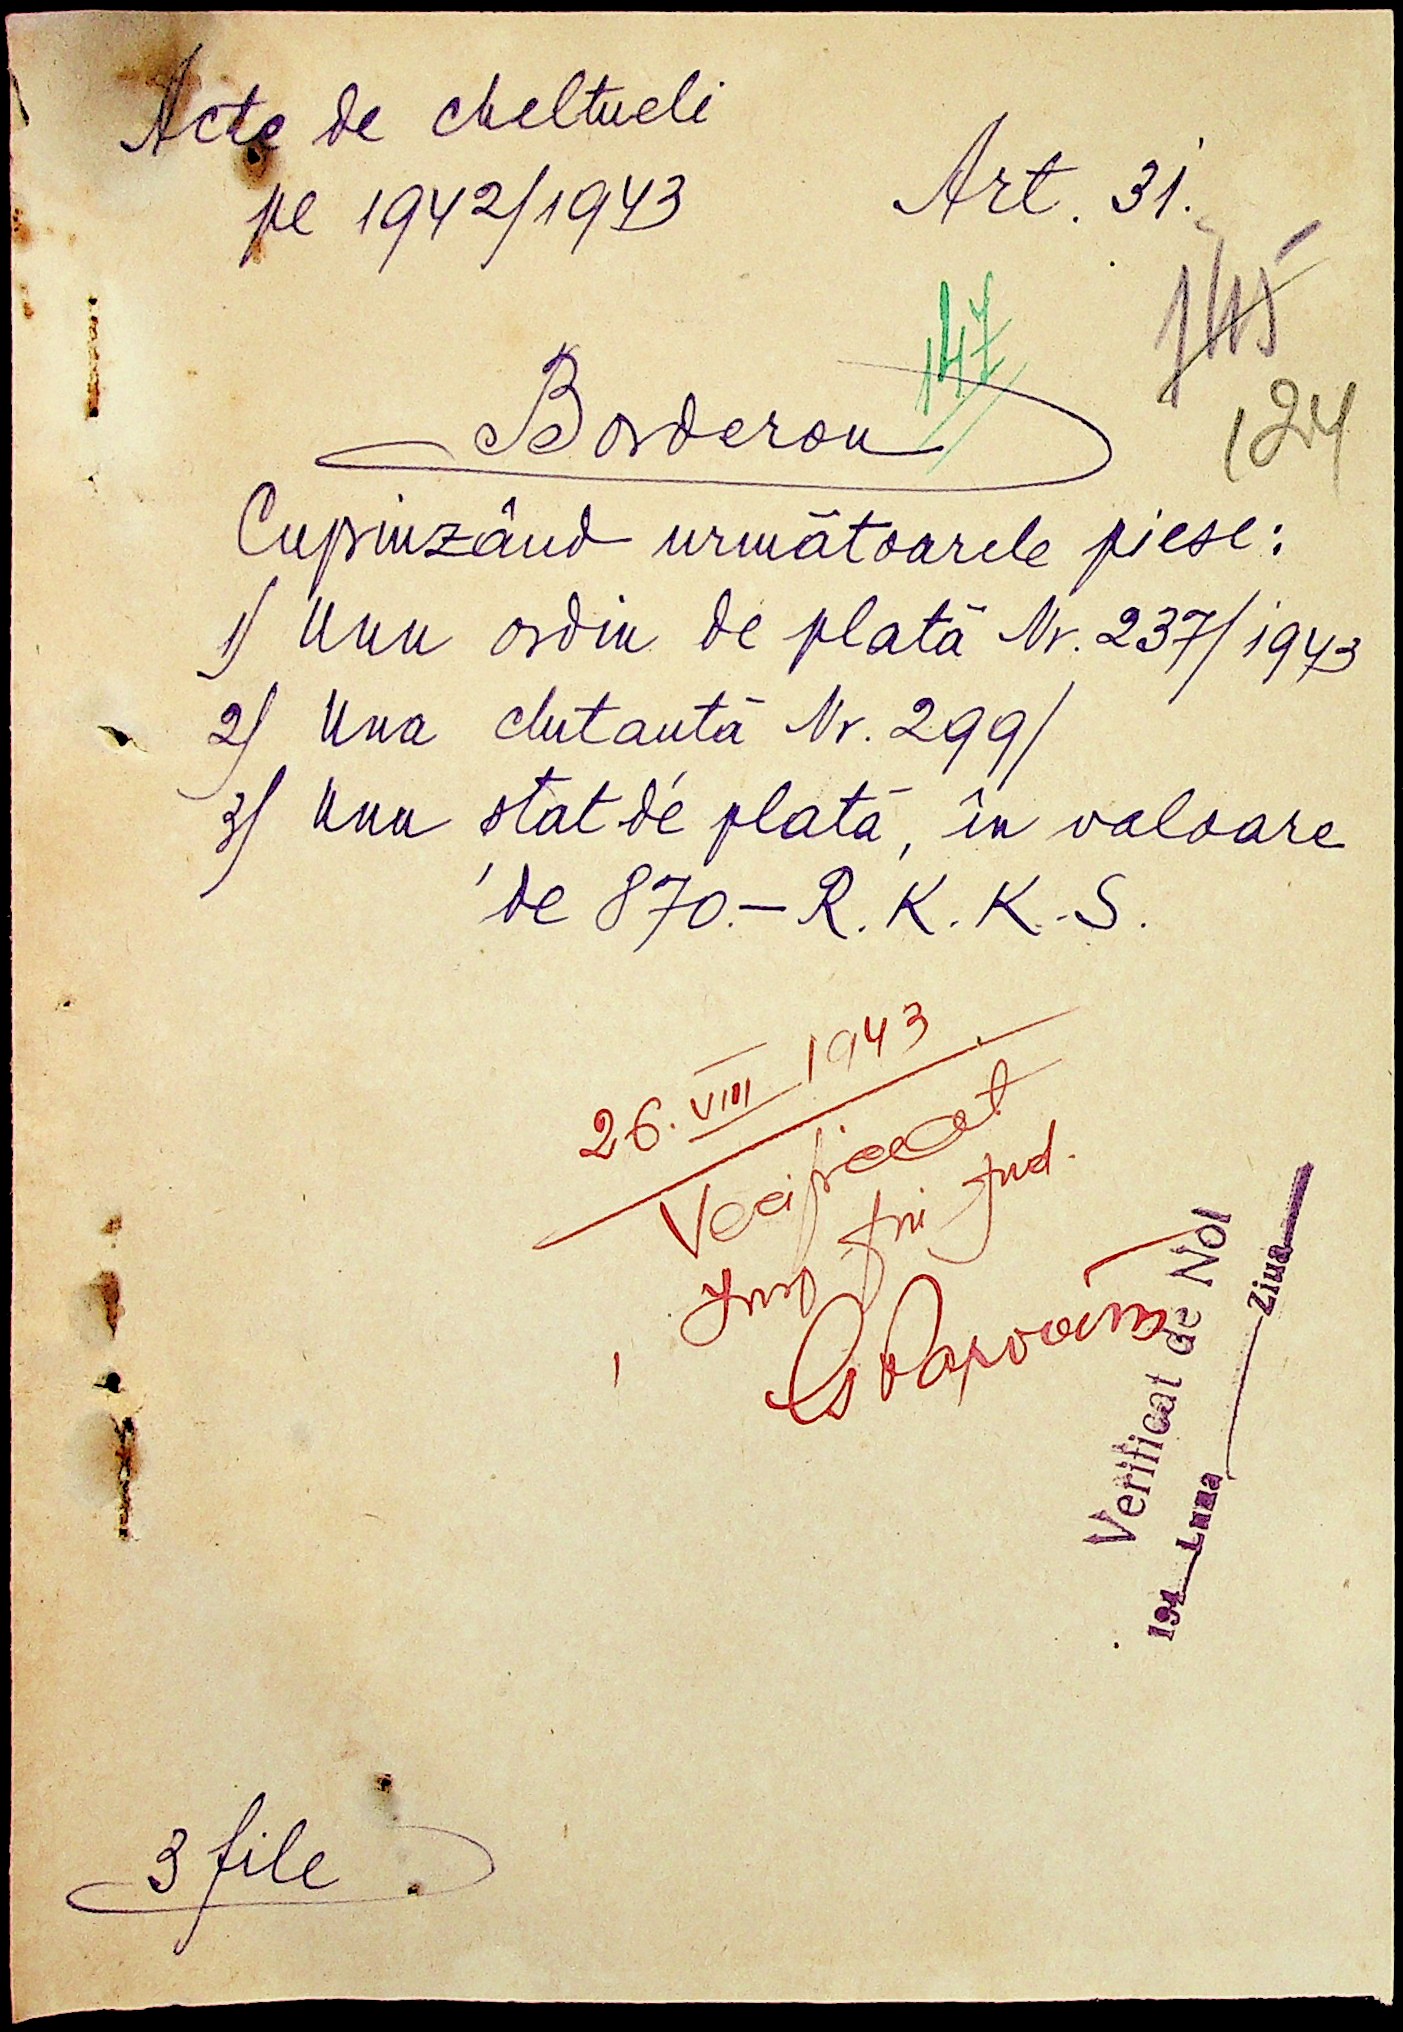 Acte de cheltueli
pe 1942/1943
Art. 31.
147
145
124
Borderou
Cuprinzând următoarele piese:
1) Unu ordin de plată Nr. 237/1943
2) Una chitantă Nr. 299/
3) Unu stat de plată, în valoare
de 870.- R.K.K.S.
26.VIII 1943
Verificat
Jud.
Verificat de Noi
194 Luna Ziua
3 file